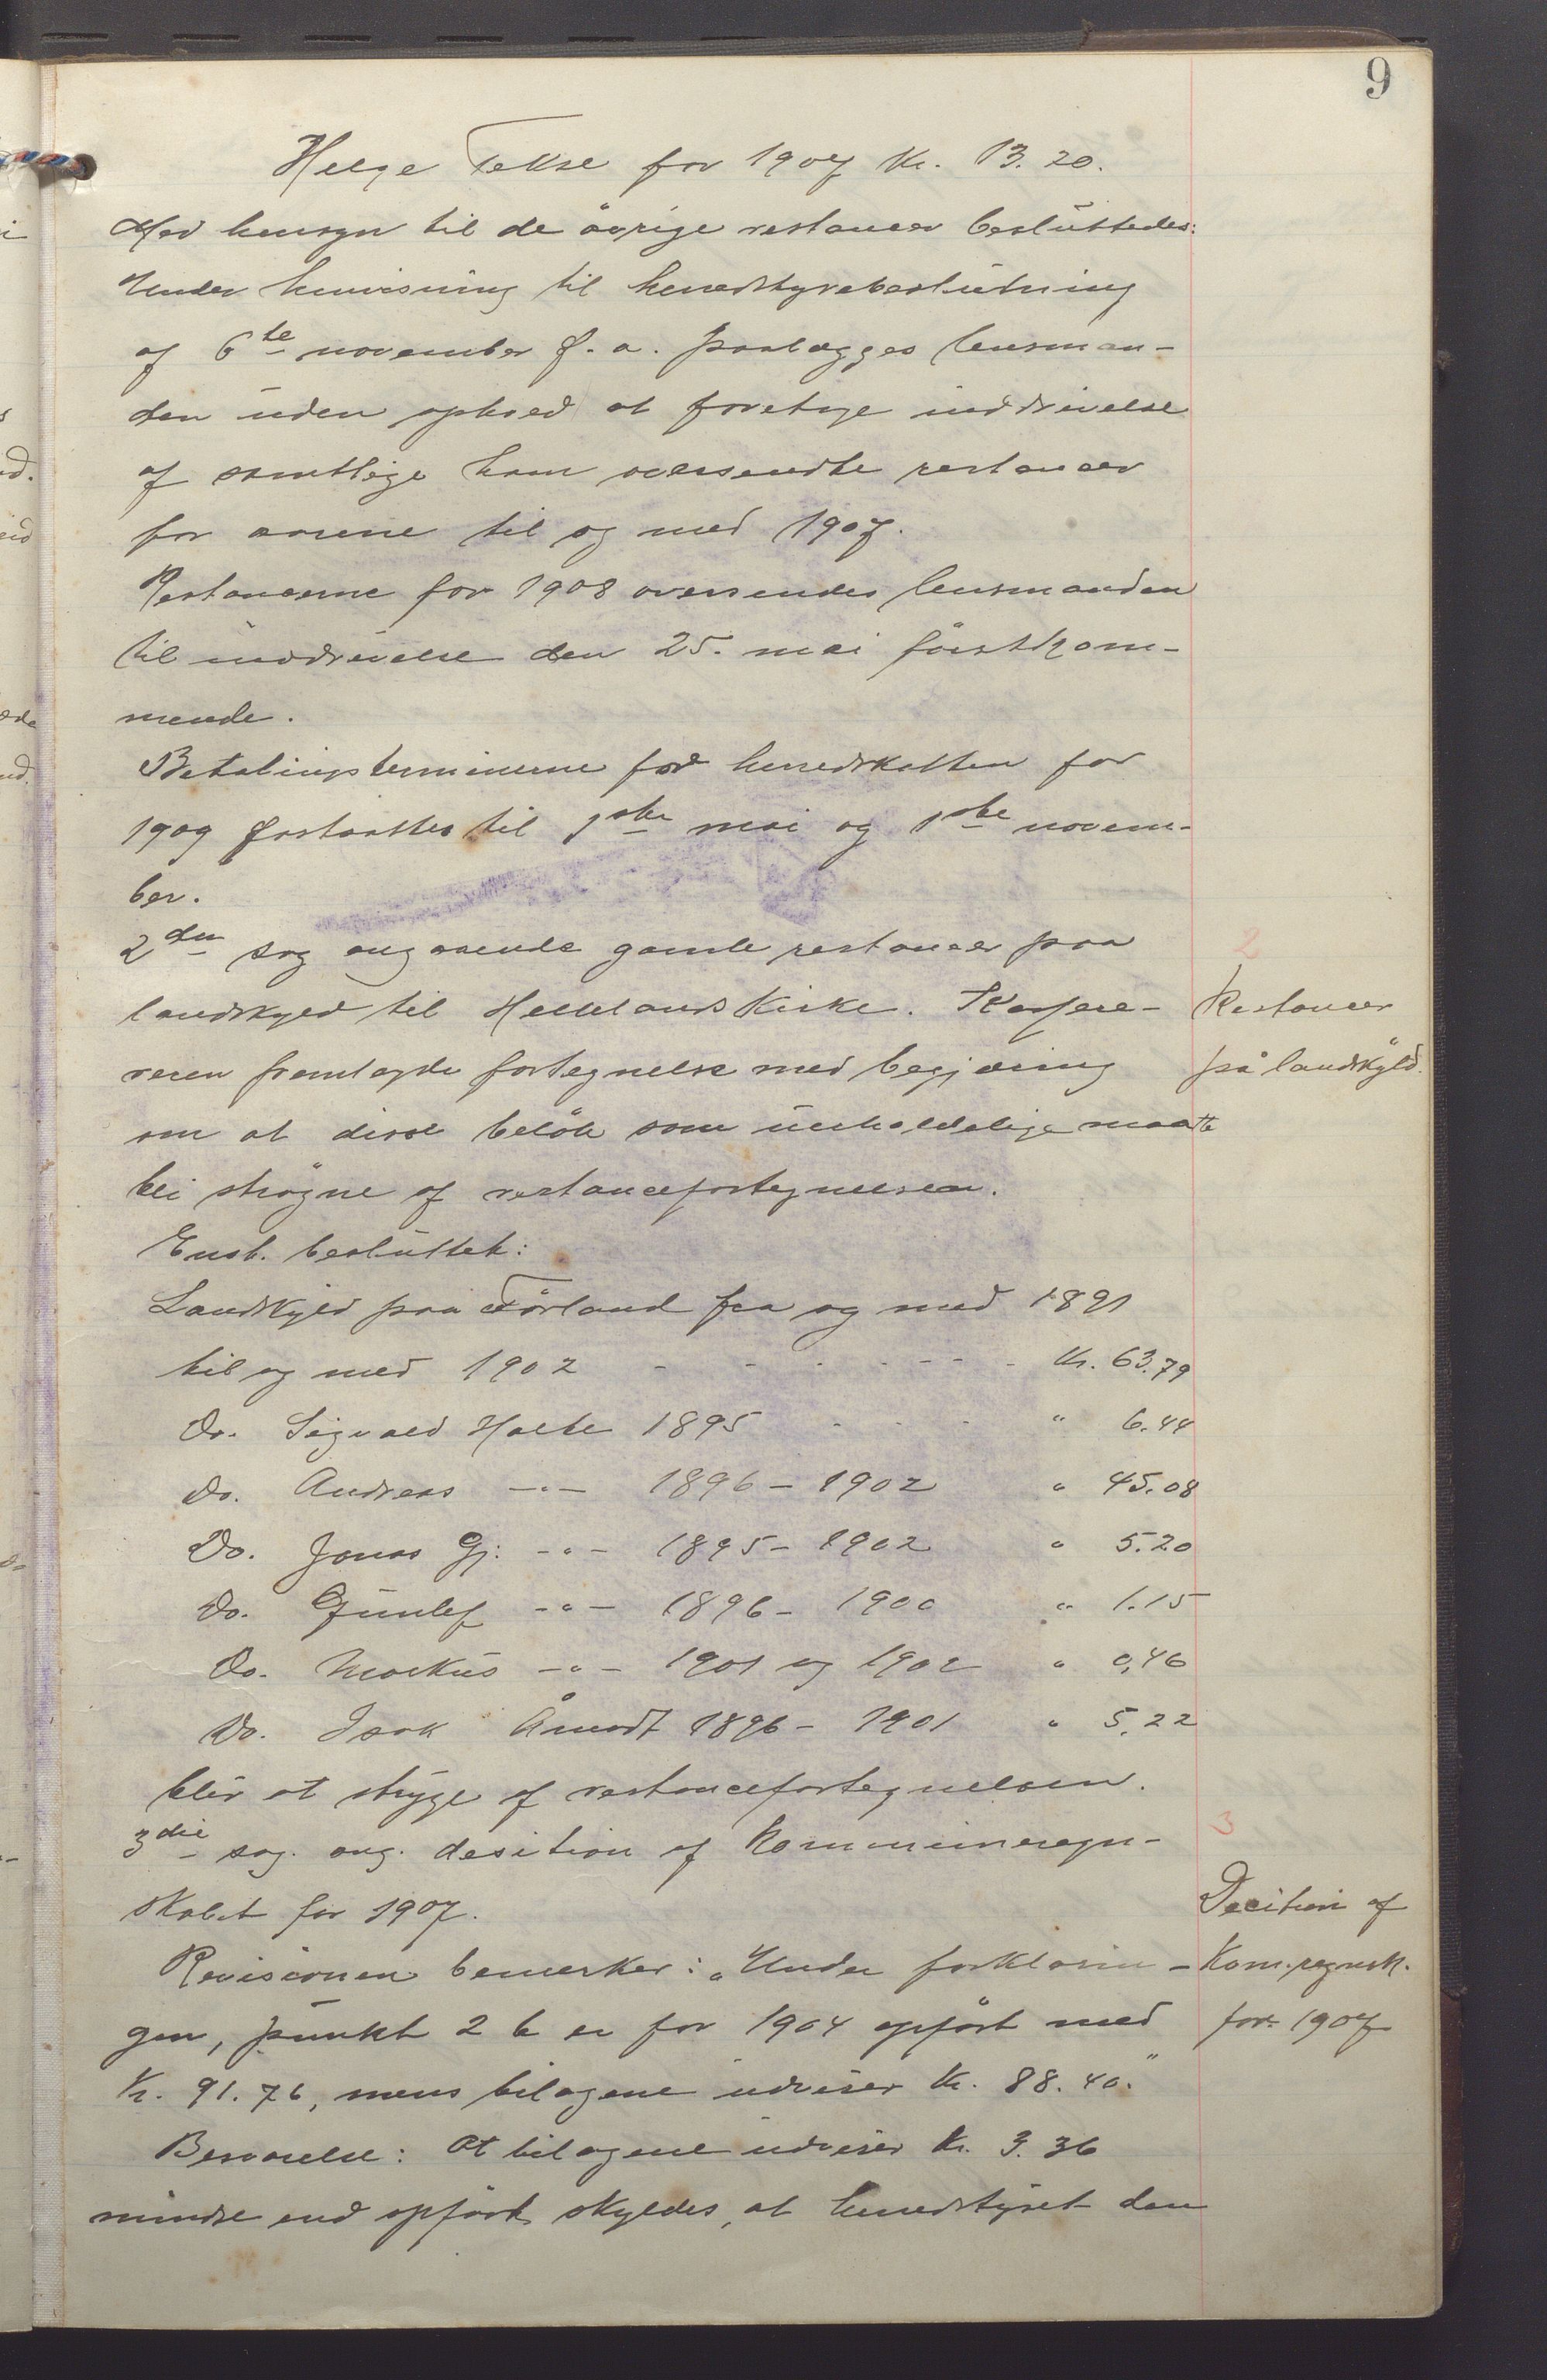 9
Helge Tekse for 1907 Kr. 13.20.
Med hensyn til de övrige restancer besluttedes:
Under henvisning til herredstyrebeslutning
af 6te november f. a. paalægges lensman-
den uden ophold at foretage inddrivelse
af samtlige ham oversendte restancer
for aarene til og med 1907.
Restancerne for 1908 oversendes lensmanden
til inddrivelse den 25. mai förstkom-
mende.
Betalingsterminerne for herredskatten for
1909 fastsattes til 1ste mai og 1ste novem-
ber.
2den sag angaaende gamle restancer paa
2
landskyld til Hetlands Kirke. Kasse-
Restancer
reren fremlagde fortegnelse med begjæring
på landskyld.
om at disse beløb som uerholdelige maatte
bli strögne af restancefortegnelsen.
Enst. besluttet:
Landskyld paa Förland fra og med 1891
til og med 1902 - - - - - - - Kr. 63.79
Do. Sigvald Halte 1895 - - - " 6.44
Do. Andreas -"- 1896 - 1902 " 45.08
Do. Jonas Gj. -"- 1895 - 1902 " 5.20
Do. Gunlef -"- 1896 - 1900 " 1.15
Do. Markus -"- 1901 og 1902 " 0,46
Do. Isak Åmodt 1896 - 1901 " 5.22
blir at stryge af restancefortegnelsen.
3die sag. ang. desition af Kommuneregn-
3
skabet for 1907.
Decition af
Revisionen bemerker: „Under forklarin-
Kom.regnsk.
gen, punkt 2 b er for 1904 opfört med
for 1907
Kr. 91.76, mens bilagene udviser Kr. 88.40."
Besvarelse: At bilagene udviser Kr. 3.36
mindre end opfört skyldes, at herredstyret den